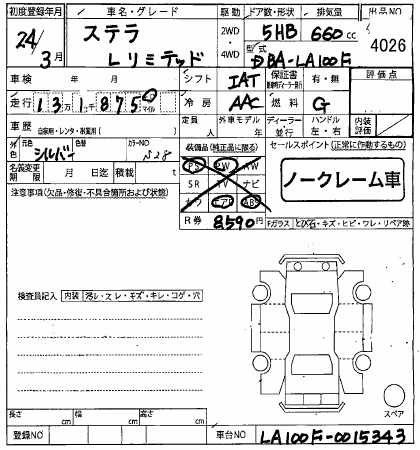 初度登録年月 車名・グレード 駆動 ドア数・形状 排気量 出品NO
24/3月 ステラ Lリミテッド 2WD・4WD 5HB 660cc 4026
型式 DBA-LA100F
車検 年 月 シフト IAT 保証書 有・無 評価点
走行 13万1千875 km マイル 冷房 AAC 燃料 G
車歴 自家用・レンタ・営業用( ) 定員 人 外車モデル 年 ディーラー 並行 ハンドル 左・右 内装評価
色 元色 シルバー 色替 カラーNO N28
装備品(純正品に限る) セールスポイント(正常に作動するもの)
名義変更期限 月 日迄 積載 t
PS PW AW
注意事項(欠品・修復・不具合箇所および状態)
SR TV ナビ
カワ エアB ABS
ノークレーム車
R券 8590円
Fガラス とび石・キズ・ヒビ・ワレ・リペア跡
検査員記入 内装 汚レ・スレ・キズ・キレ・コゲ・穴
スペア
長さ cm 幅 cm 高さ cm
登録NO 車台NO LA100F-0015343